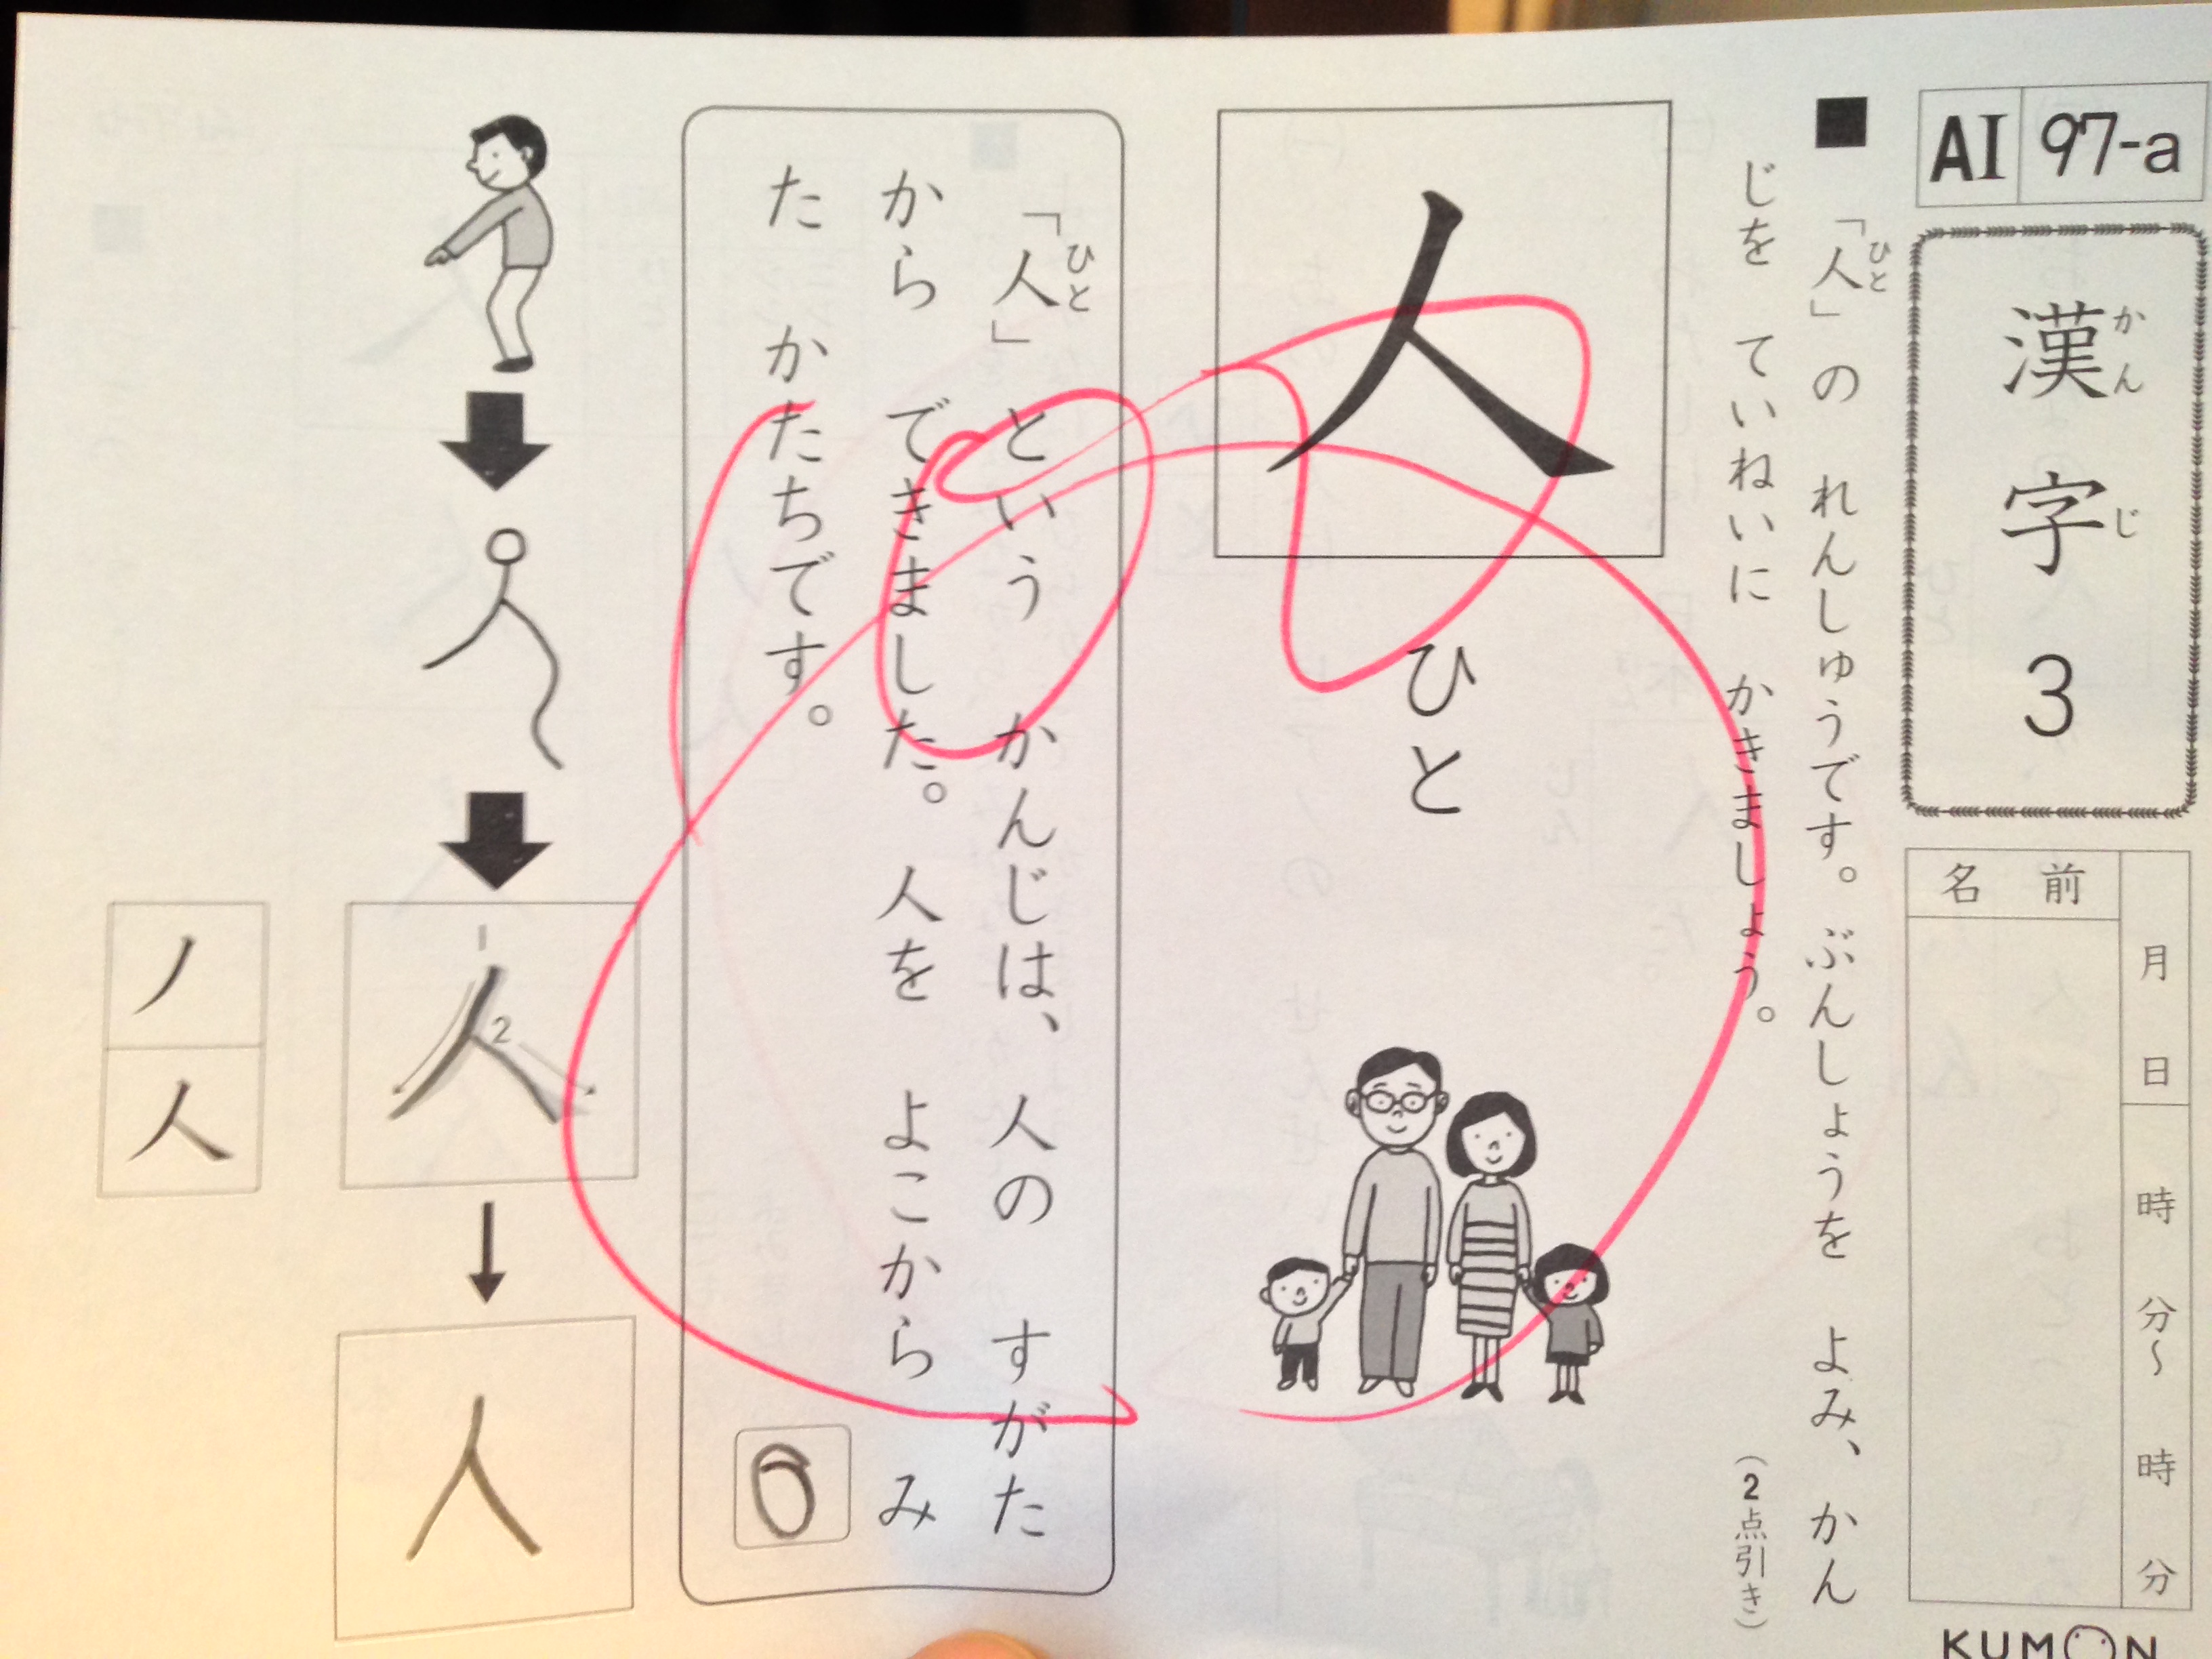 AI 97-a
漢字 3
かん じ
月 日 時 分〜 時 分
名前
■「人」の れんしゅうです。ぶんしょうを よみ、かん
ひと
じを ていねいに かきましょう。
(2点引き)
人 ひと
「人」と いう かんじは、人の すがた
ひと
から できました。人を よこから み
た かたちです。
1
2
人
人
ノ
人
KUMON